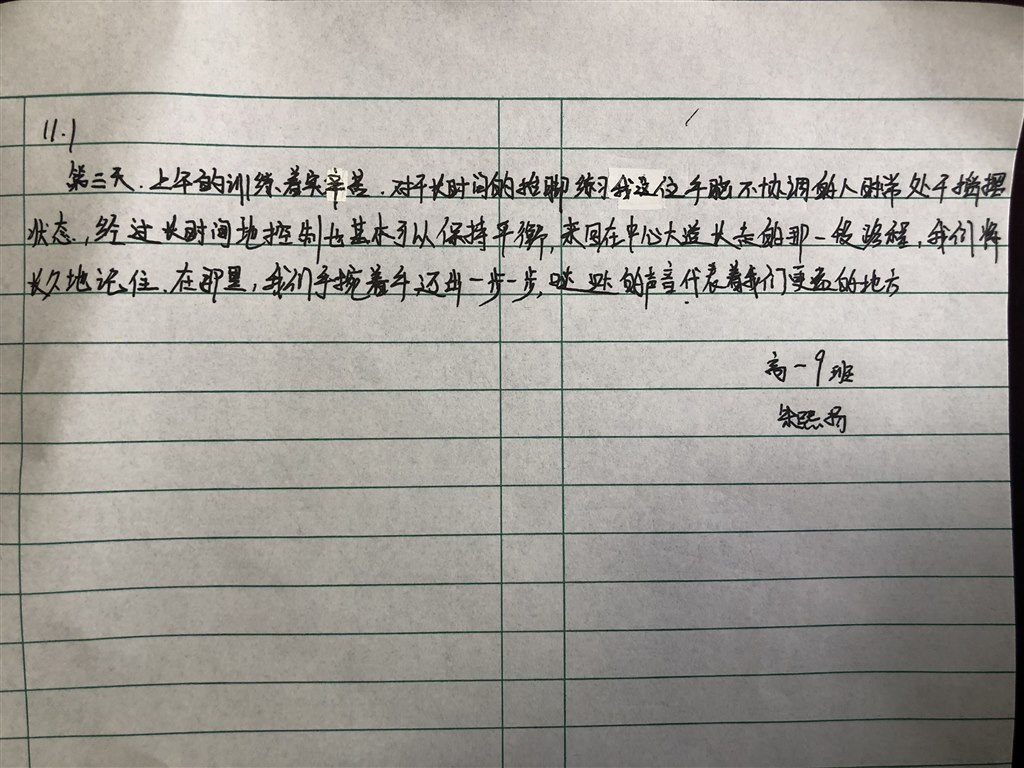 11.1
第三天,上午的训练着实辛苦,对于长时间的摆脚练习我这位手脚不协调的人时常处于摇摆
状态,经过长时间地控制也基本可以保持平衡,来回在中心大道长走的那一段路程,我们将
长久地记住,在那里,我们手挽着手迈出一步一步,哒哒的声音代表着我们要到的地方
高一9班
朱熙扬